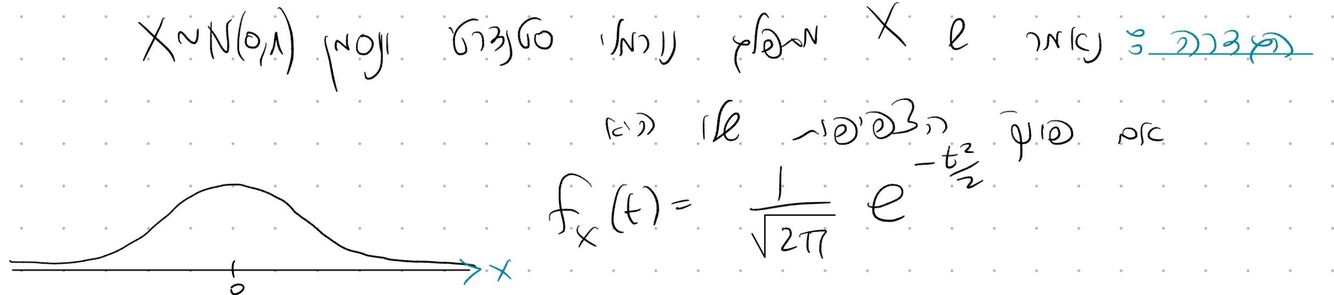 הגדרה: נאמר ש X מתפלג נורמלי סטנדרט ונסמן X~N(0,1)
אם פונק' הצפיפות שלו היא
f_X(t) = \frac{1}{\sqrt{2\pi}} e^{-\frac{t^2}{2}}
X
0